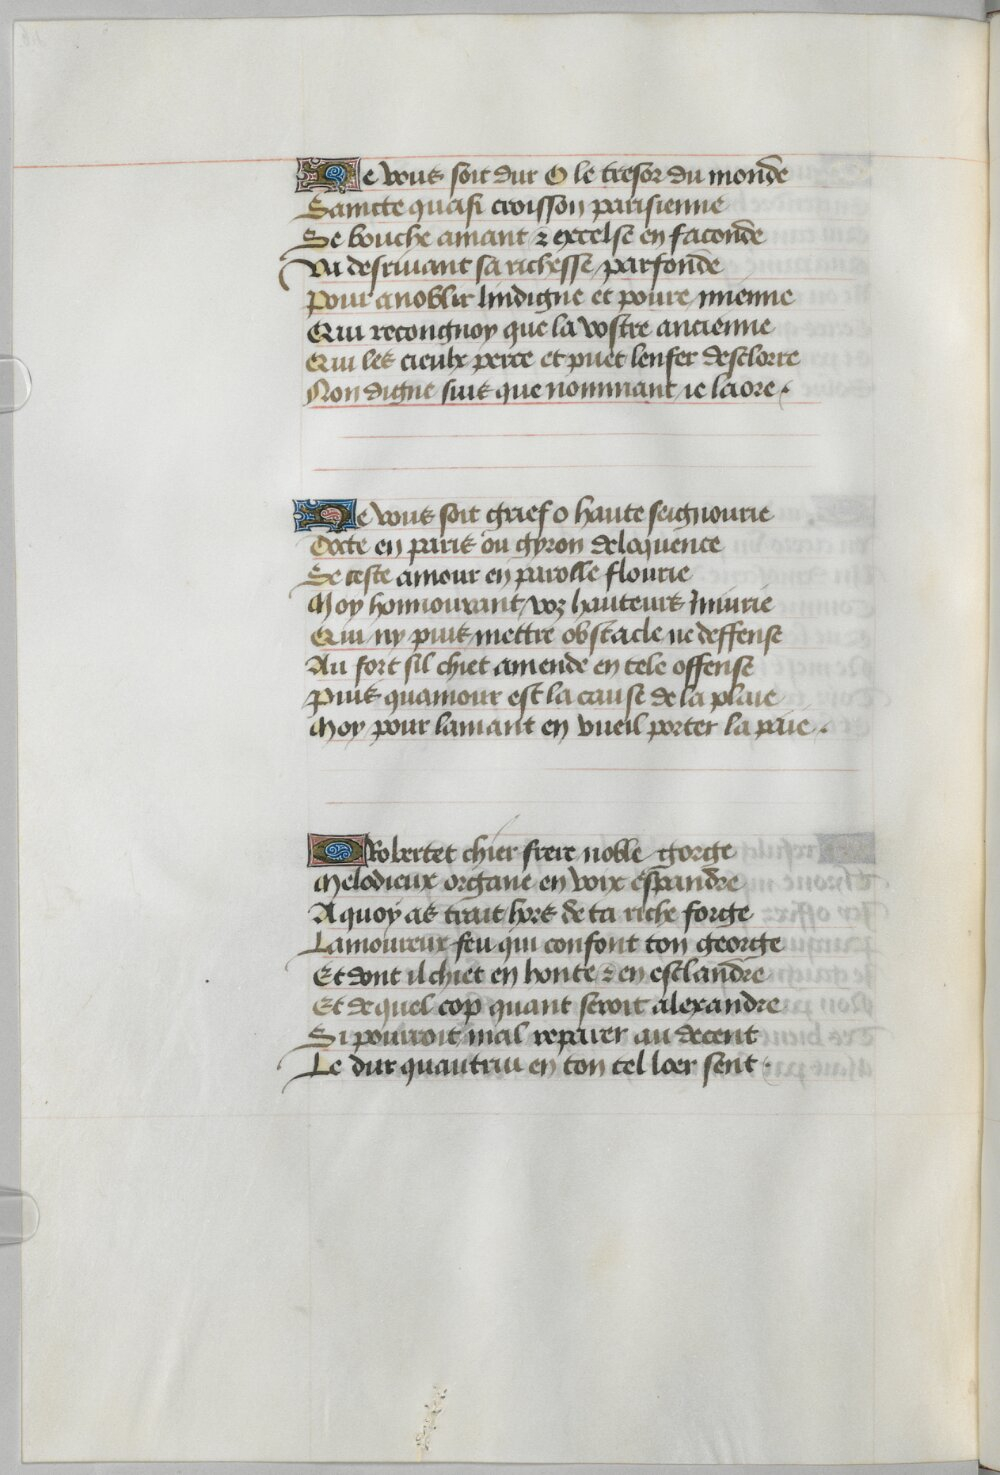 Ne vous soit dur O le tresor du monde
Saincte quasi croisson parisienne
Se bouche amant & excelse en faconde
Va desrivant sa richesse parfonde
Pour anoblir lindigne et povre mienne
Qui recongnoy que la vostre ancienne
Qui les cieulx perce et puet lenfer desclorre
Non digne suis que nommant ie laore .
Ne vous soit grief o haute seignourie
Docte en paris ou gyron deloquence
Se ceste amour en parolle flourie
Moy honnourant voz hauteurs Iniurie
Qui ny puis mettre obstacle ne deffense
Au fort sil chiet amende en tele offense
Puis quamour est la cause de la plaie
Moy pour lamant en vueil porter la paie .
O Robertet chier frere noble gorge
Melodieux organe en voix espandre
A quoy as trait hors de ta riche forge
Lamoureux feu qui confont ton george
Et dont il chiet en honte & en esclandre
Et de quel cop quant seroit alexandre
Si pourroit mal reparer au decent
Le dur quautrui en ton tel loer sent .